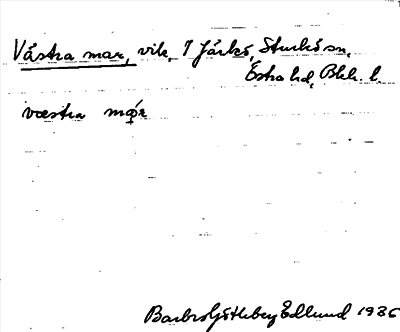 Västra mar, vik, 7 Järkö, Sturkö sn,
Östra hd, Blek. l.
væstra mǫ́r
Barbro Götheberg Edlund 1936